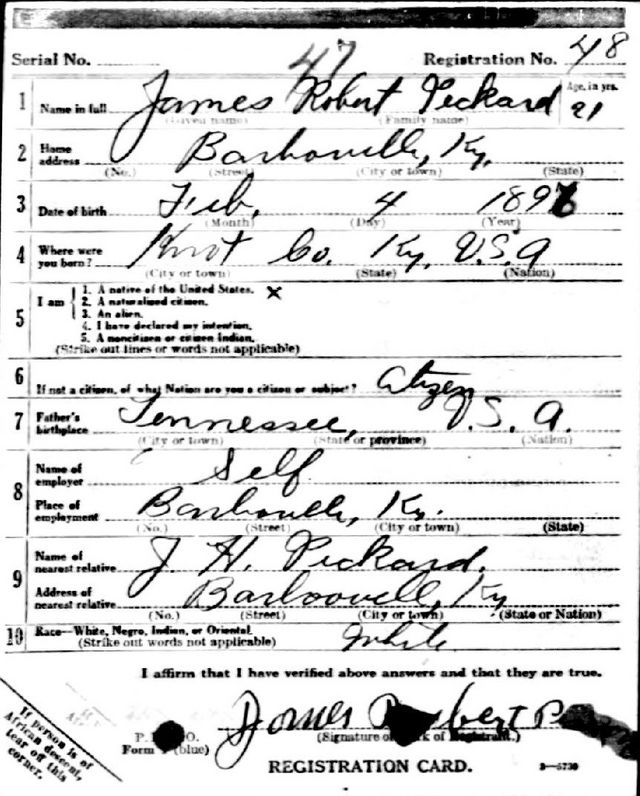 Serial No. 47 Registration No. 48
1 Name in full James Robert Peckard Age, in yrs. 21
(Given name) (Family name)
2 Home address Barbourvelle, Ky.
(No.) (Street) (City or town) (State)
3 Date of birth Feb. 4 1897
(Month) (Day) (Year)
4 Where were you born? Knot Co. Ky. U.S.A
(City or town) (State) (Nation)
5 I am
1. A native of the United States. x
2. A naturalized citizen.
3. An alien.
4. I have declared my intention.
5. A noncitizen or citizen Indian.
(Strike out lines or words not applicable)
6 If not a citizen, of what Nation are you a citizen or subject? Citizen
7 Father's birthplace Tennessee, U.S.A.
(City or town) (State or province) (Nation)
8 Name of employer Self
Place of employment Barbourvelle, Ky.
(No.) (Street) (City or town) (State)
9 Name of nearest relative J. H. Peckard.
Address of nearest relative Barboovell, Ky
(No.) (Street) (City or town) (State or Nation)
10 Race—White, Negro, Indian, or Oriental. White
(Strike out words not applicable)
I affirm that I have verified above answers and that they are true.
James Robert
(Signature or mark of Registrant.)
P. M. G. O.
Form 1 (blue)
REGISTRATION CARD.
3—5739
If person is of
African descent,
tear off this
corner.